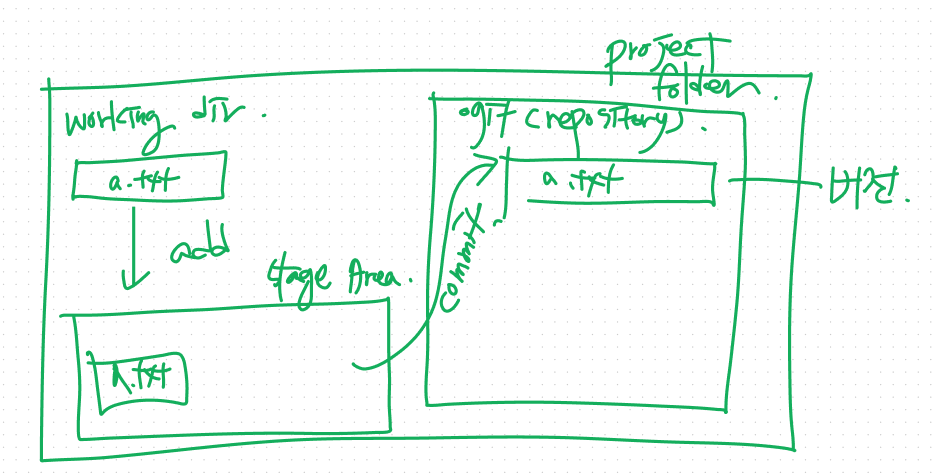 project
folder.
working dir.
a.txt
add
stage Area.
a.txt
commit.
.git (repository).
a.txt
버전.